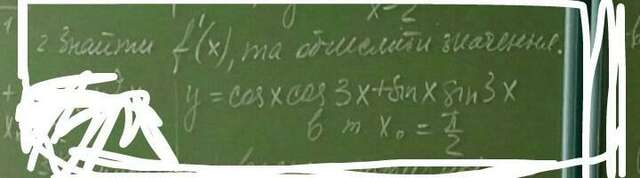 2. Знайти f'(x), та обчислити значення.
y = cos x cos 3x + sin x sin 3x
в т x₀ = π/2